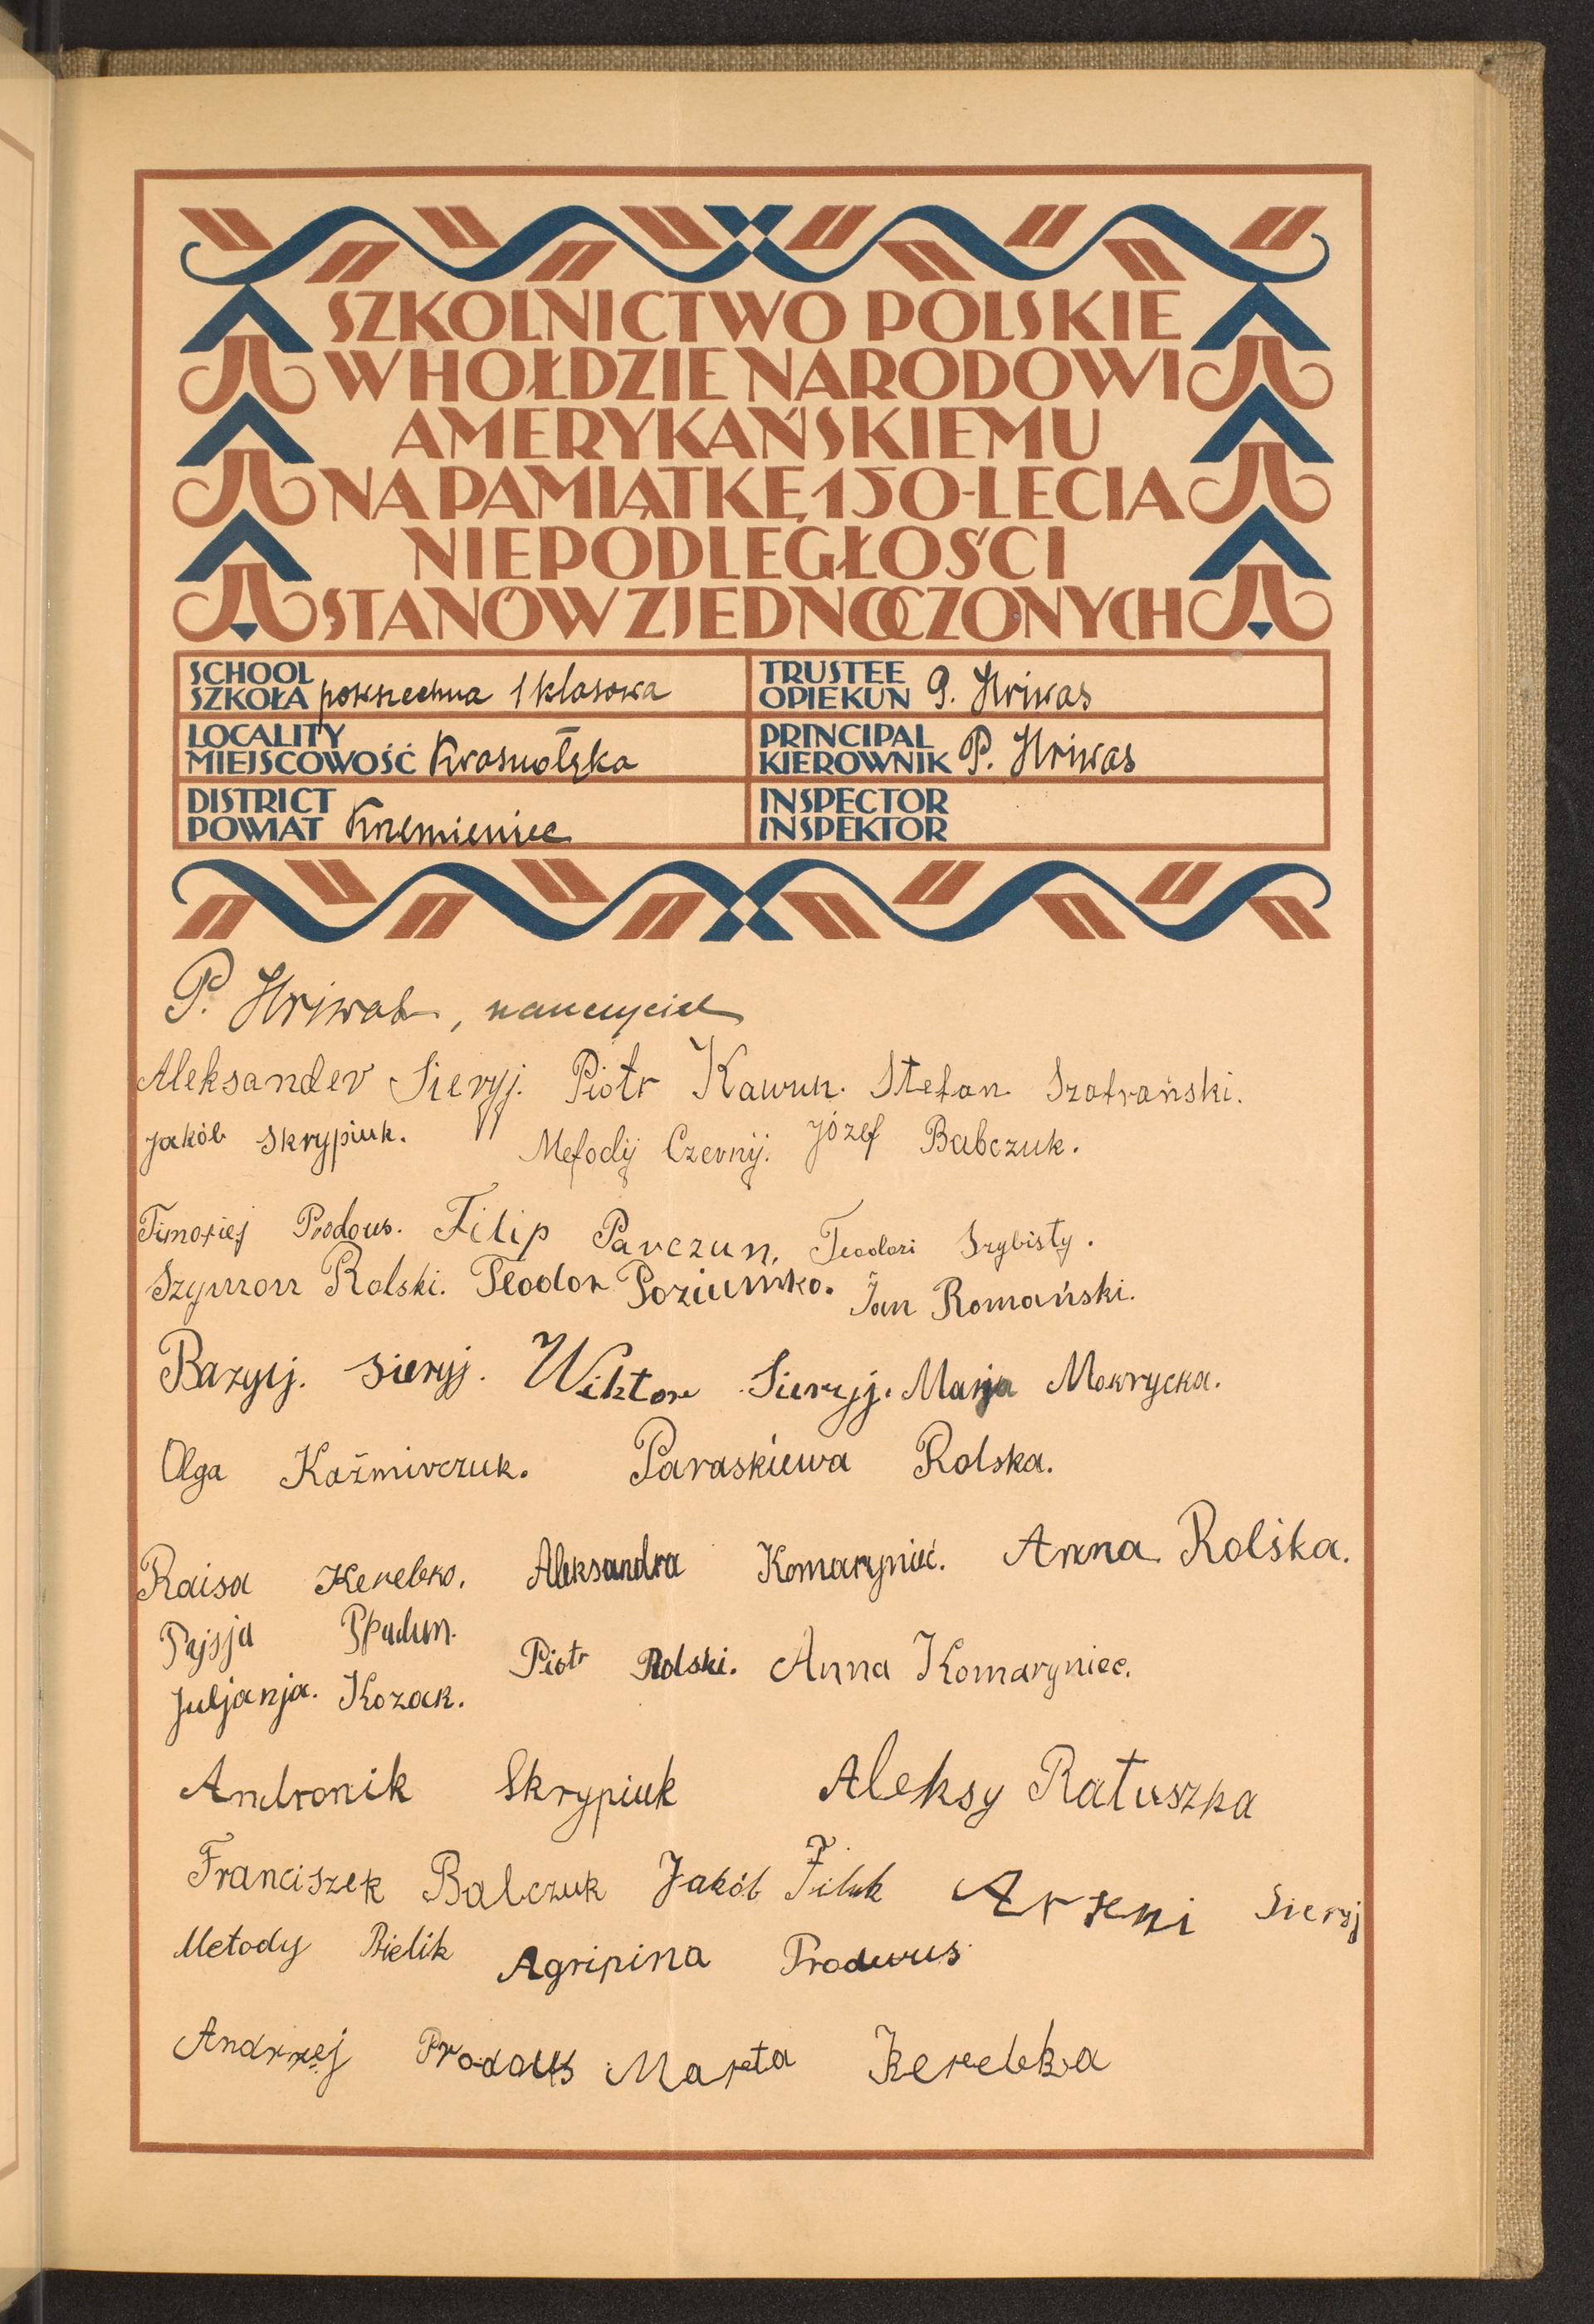 SZKOLNICTWO POLSKIE
W HOŁDZIE NARODOWI
AMERYKAŃSKIEMU
NA PAMIĄTKĘ 150-LECIA
NIEPODLEGŁOŚCI
STANÓW ZJEDNOCZONYCH
SCHOOL
SZKOŁA powszechna 1 klasowa
TRUSTEE
OPIEKUN P. Hriwas
LOCALITY
MIEJSCOWOŚĆ Krasnołęka
PRINCIPAL
KIEROWNIK P. Hriwas
DISTRICT
POWIAT Krzemieniec
INSPECTOR
INSPEKTOR
P. Hriwas, nauczyciel
Aleksander Sieryj. Piotr Kawun. Stefan Szafrański.
Jakób Skrypiuk. Mefodij Czernij. Józef Babczuk.
Timofiej Prodous. Filip Parczun. Teodozi Szybisty.
Szymon Rolski. Teodor Poziumko. Jan Romański.
Bazylj. Sieryj. Wiktor Sieryj. Marja Mokrycka.
Olga Kaźmirczuk. Paraskiewa Rolska.
Raisa Kerebko. Aleksandra Komaryniec. Anna Rolska.
Juljanja. Kozak. Piotr Rolski. Anna Komaryniec.
Andronik Skrypiuk Aleksy Ratuszka
Franciszek Balczuk Jakób Arseni Sieryj
Metody Bielik Agripina Prodwus
Andrzej Prodous Marta Kerebka